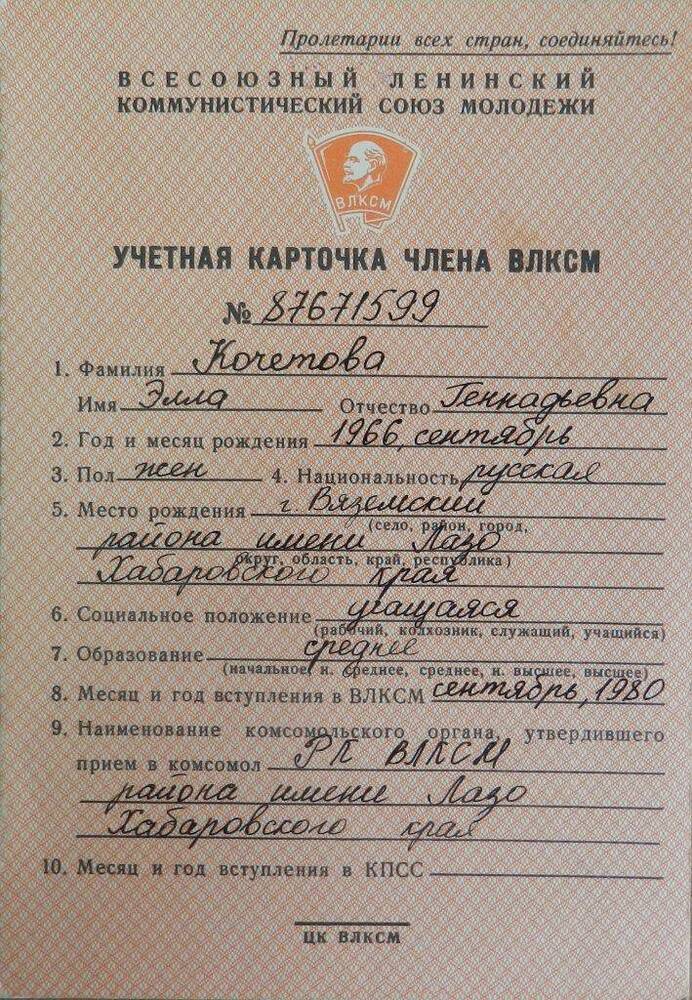 Пролетарии всех стран, соединяйтесь!
ВСЕСОЮЗНЫЙ ЛЕНИНСКИЙ
КОММУНИСТИЧЕСКИЙ СОЮЗ МОЛОДЕЖИ
ВЛКСМ
УЧЕТНАЯ КАРТОЧКА ЧЛЕНА ВЛКСМ
№ 87671599
1. Фамилия Кочетова
Имя Элла Отчество Геннадьевна
2. Год и месяц рождения 1966, сентябрь
3. Пол жен 4. Национальность русская
5. Место рождения г. Вяземский
(село, район, город,
района имени Лазо
округ, область, край, республика)
Хабаровского края
6. Социальное положение учащаяся
(рабочий, колхозник, служащий, учащийся)
7. Образование среднее
(начальное, н. среднее, среднее, н. высшее, высшее)
8. Месяц и год вступления в ВЛКСМ сентябрь, 1980
9. Наименование комсомольского органа, утвердившего
прием в комсомол РК ВЛКСМ
района имени Лазо
Хабаровского края
10. Месяц и год вступления в КПСС
ЦК ВЛКСМ